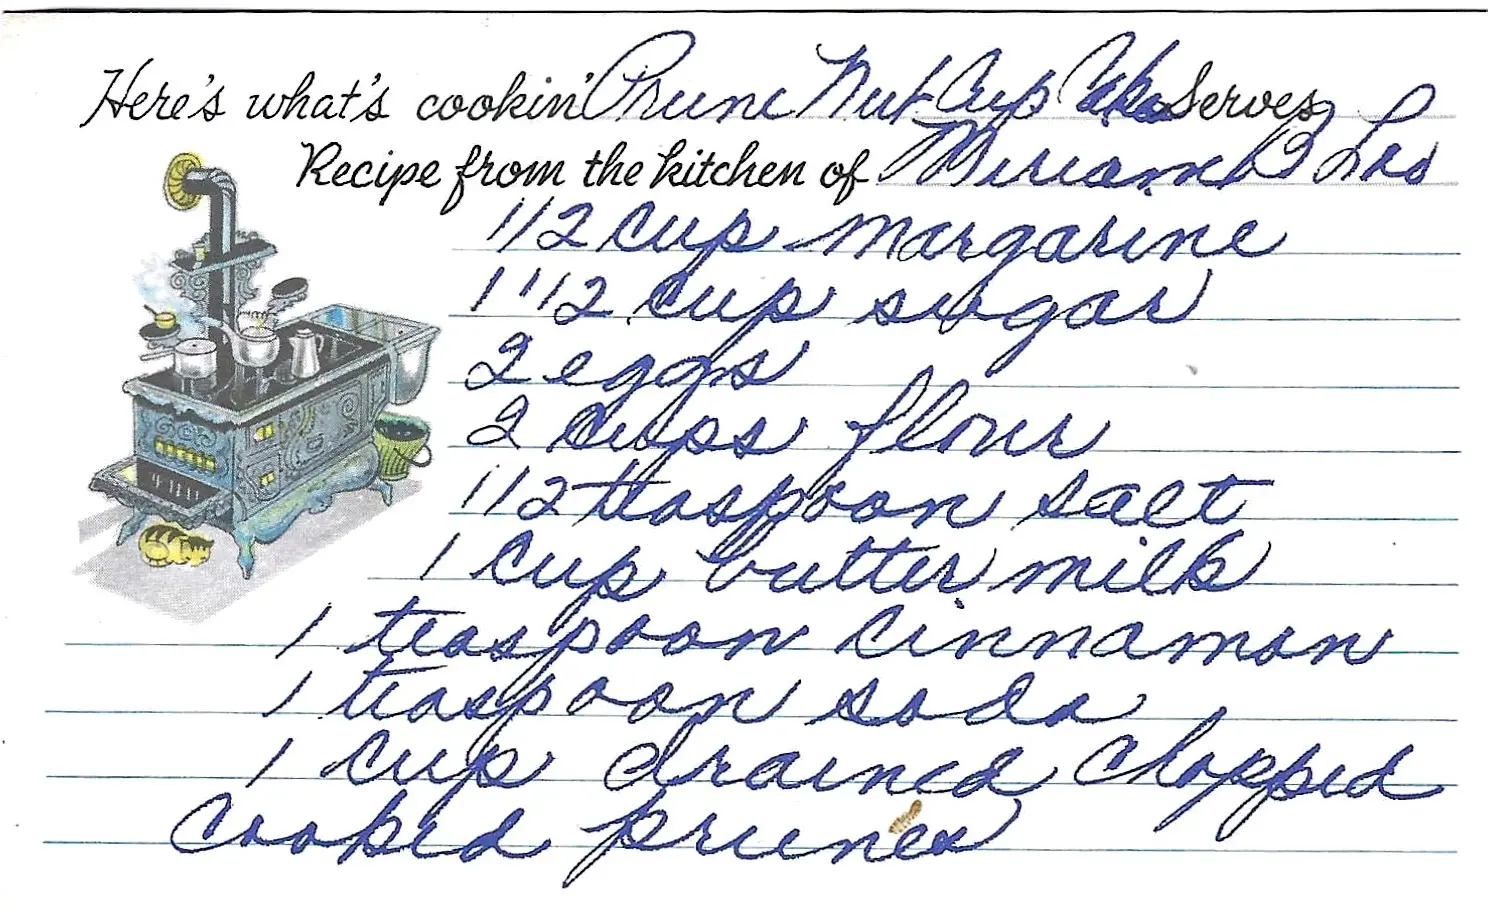 Here's what's cookin' Prune Nut Cup Cake Serves
Recipe from the kitchen of Miriam B Lee
1/2 cup margarine
1 1/2 cup sugar
2 eggs
2 cups flour
1/2 teaspoon salt
1 cup butter milk
1 teaspoon cinnamon
1 teaspoon soda
1 cup drained chopped
cooked prunes